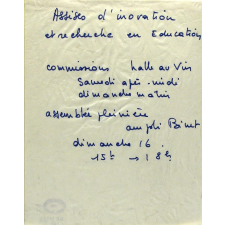 Assises d'inovation
et recherche en Education
commissions halle au Vin
Samedi après-midi
dimanche matin
assemblée plénière
amphi Binet
dimanche 16
15h → 18h